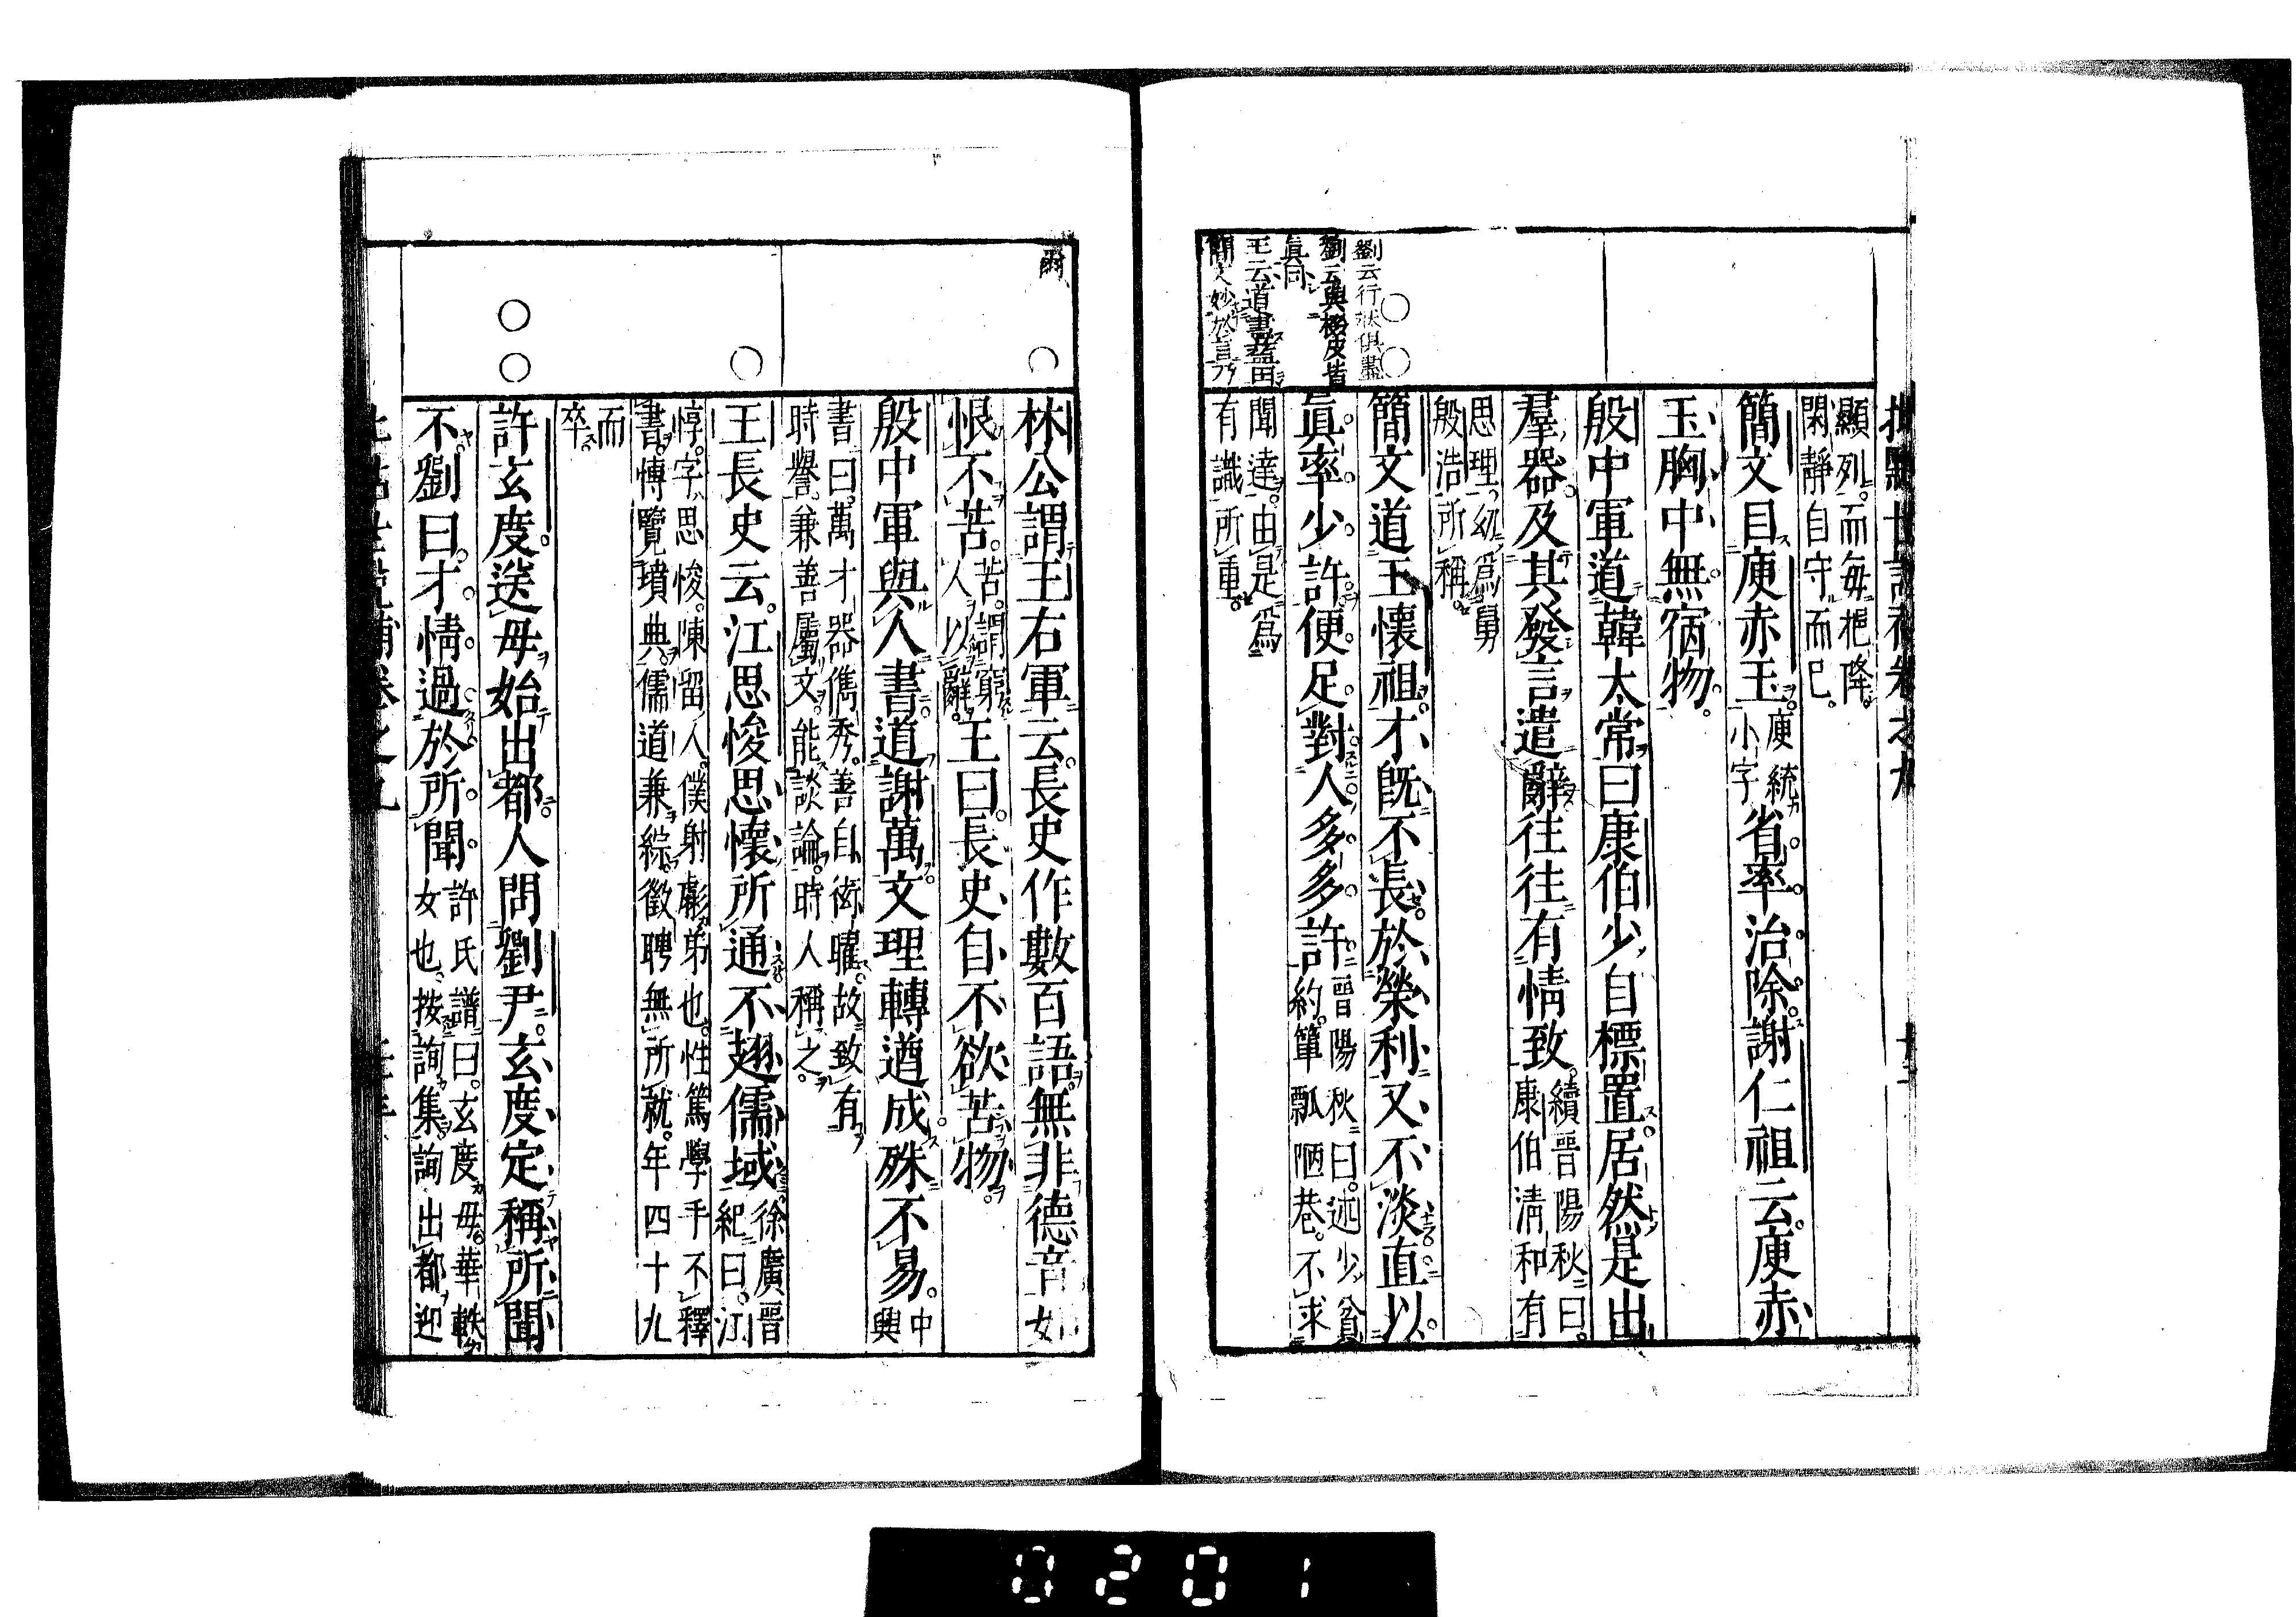 顯列。而每挹降。
閑靜自守而已。
簡文目庾赤玉。庾統小字省率治除。謝仁祖云。庾赤
玉胸中無宿物。
殷中軍道韓太常曰。康伯少自標置。居然是出
羣器。及其發言遣辭。往往有情致。續晉陽秋曰。康伯清和有
思理。幼爲舅
殷浩所稱。
簡文道王懷祖。才旣不長。於榮利又不淡。直以
眞率少許。便足對人多多許。晉陽秋曰。述少貧約。簞瓢陋巷。不求
聞達。由是爲
有識所重。
劉云行狀俱盡
劉云與極皮皆
眞同
王云道盡藍田
簡文妙於言乃
爾
林公謂王右軍云。長史作數百語。無非德音。如
恨不苦。苦。謂窮人以辭。王曰。長史自不欲苦物。
殷中軍與人書。道謝萬。文理轉遒。成殊不易。中興
書曰。萬才器儁秀。善自衒曜。故致有
時譽。兼善屬文。能談論。時人稱之。
王長史云。江思悛思懷所通。不翅儒域。徐廣晉紀曰。江
惇。字思悛。陳留人。僕射虨弟也。性篤學。手不釋
書。博覽墳典。儒道兼綜。徵聘無所就。年四十九
而
卒。
許玄度。送母始出都。人問劉尹。玄度定稱所聞
不。劉曰。才情過於所聞。許氏譜曰。玄度母。華軼女也。按詢集。詢出都迎